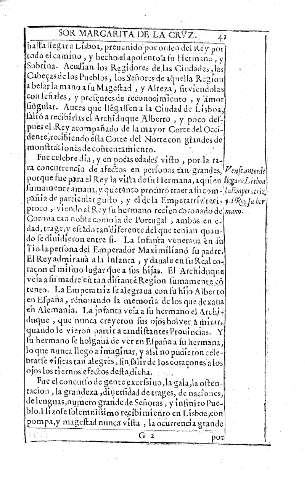 SOR MARGARITA DE LA CRVZ. 42
hasta llegar a Lisboa, preuenido por orden del Rey por
todo el camino, y hecho el aposento a su Hermana, y
Sobrina. Acudian los Regidores de las Ciudades, las
Cabeças de los Pueblos, los Señores de aquella Region
a besar la mano a su Magestad, y Alteza, siruiendolas
con señales, y presentes de reconocimiento, y amor
singular. Antes que llegassen a la Ciudad de Lisboa,
salio a recibirlas el Archiduque Alberto, y poco des-
pues el Rey acompañado de la mayor Corte del Occi-
dente, recibiendo esta Corte del Norte con grandes de
monstraciones de contentamiento.
Fue celebre dia, y en pocas edades visto, por la ra-
ra concurrencia de afectos en personas tan grandes,
porque fue para el Rey la vista de su Hermana, a quien
sumamente amaua, y que tanto procurò traer a su com-
pañia de particular gusto, y el de la Emperatriz no
poco, viendo al Rey su hermano recien coronado de
Corona tan noble como la de Portugal, ambos en e-
dad, trage, y estado tan diferente del que tenian quan-
do se diuidieron entre si. La Infanta veneraua en su
Tia la persona del Emperador Maximiliano su padre.
El Rey admiraua a la Infanta, y dauale en su Real co-
raçon el mismo lugar que a sus hijas. El Archiduque
veia a su madre en tan distante Region sumamente cō
tento. La Emperatriz se alegraua con su hijo Alberto
en España, renouando la memoria de los que dexaua
en Alemania. La Infanta veia a su hermano el Archi-
duque, que nunca creyeron sus ojos boluer a mirar,
quando le vieron partir a tan distantes Prouincias. Y
su hermano se holgaua de ver en España a su hermana,
lo que nunca llegò a imaginar, y assi no pudieron cele-
brarse vistas tan alegres, sin salir de los coraçones a los
ojos los tiernos efectos desta dicha.
Fue el concurso de gente excessiuo, la gala, la osten-
tacion, la grandeza, diuersidad de trages, de naciones,
de lenguas, numero grande de Señoras, y infinito Pue-
blo. Hizose solemnissimo recibimiento en Lisboa, con
pompa, y magestad nunca vista, la ocurrencia grande
G 2 por
llegar a Lisboa
la Emperatriz,
y el Rey su her
mano.